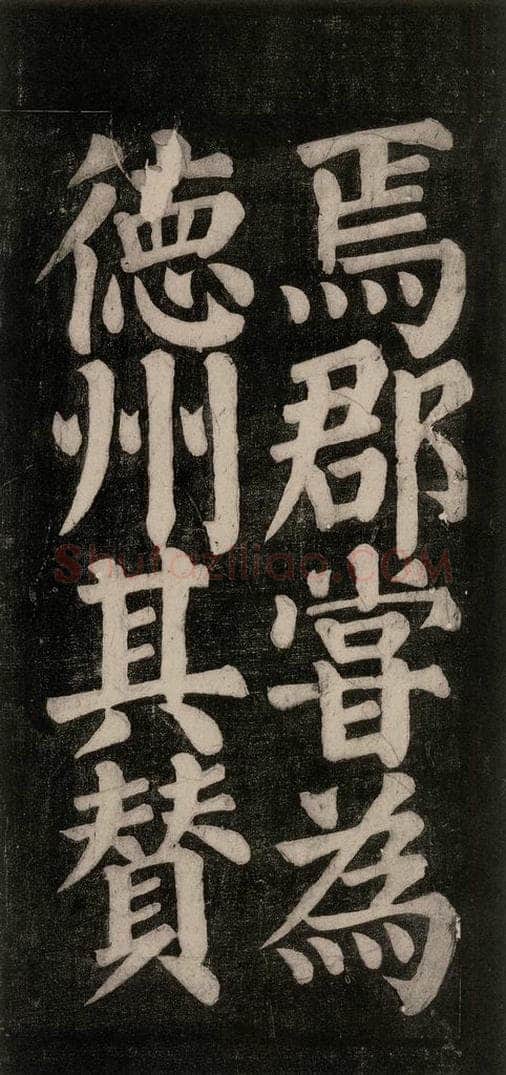 焉郡甞為
徳州其賛
Shufaziliao.COM